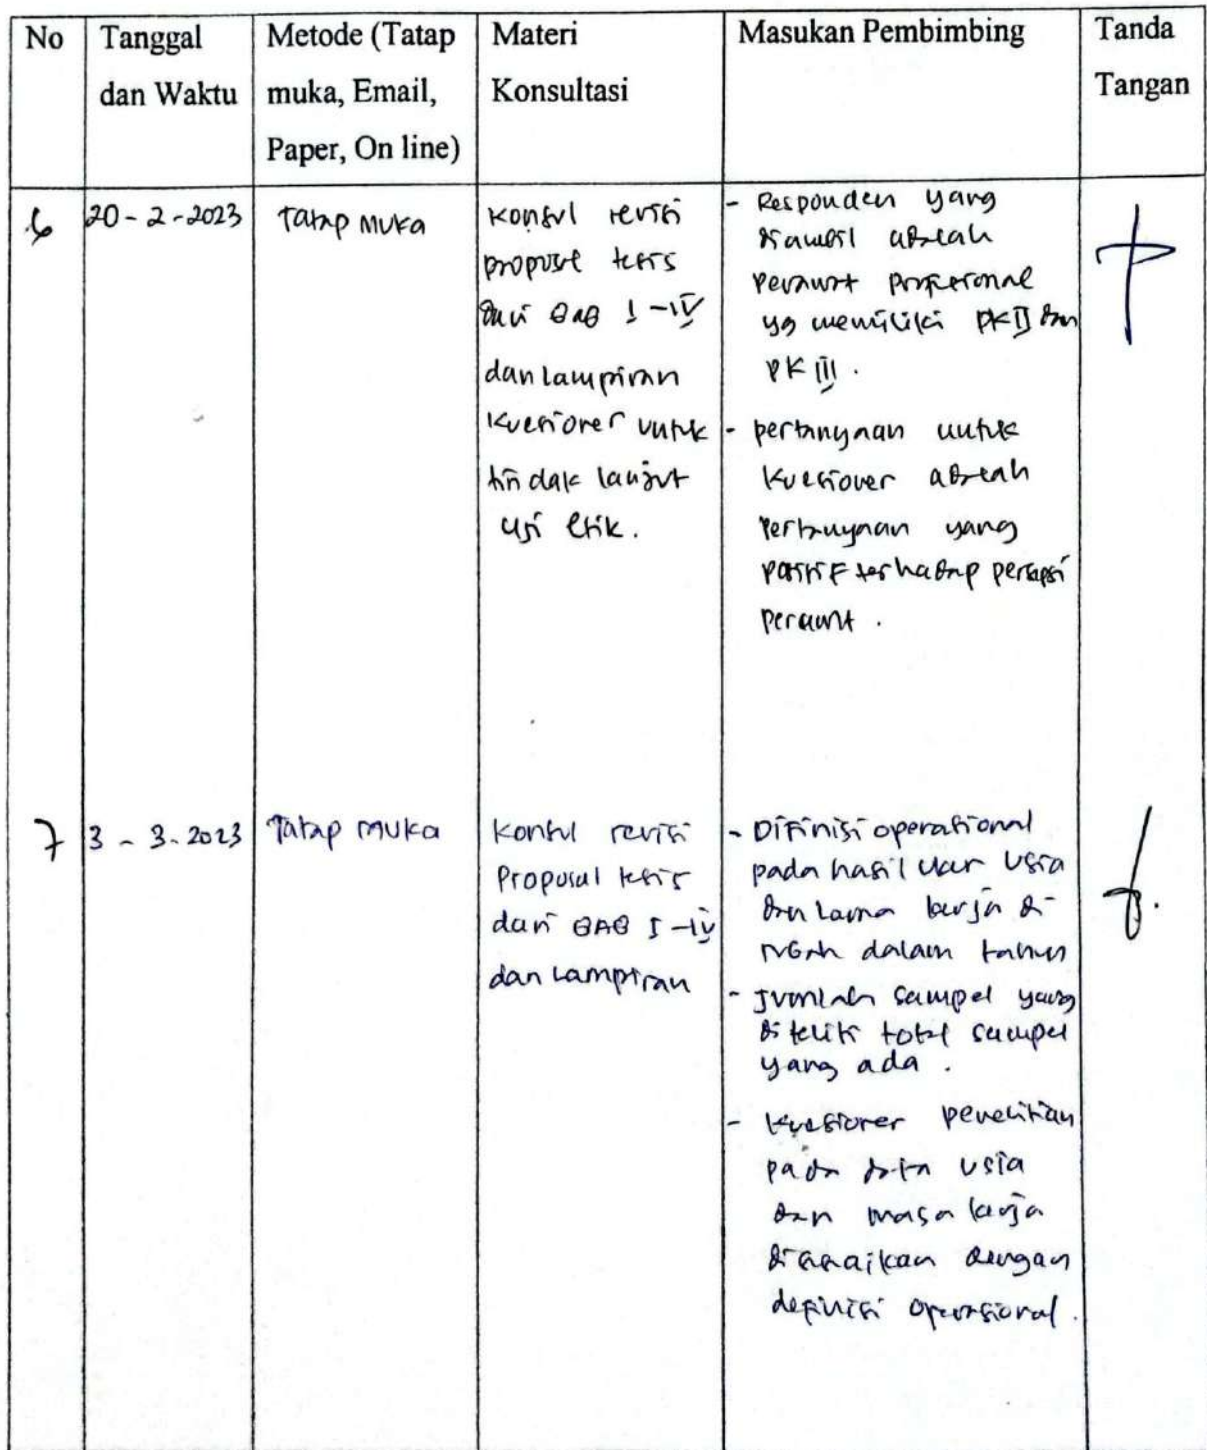 No
Tanggal
dan Waktu
Metode (Tatap
muka, Email,
Paper, On line)
Materi
Konsultasi
Masukan Pembimbing
Tanda
Tangan
6
20 - 2 - 2023
Tatap muka
Konsul revisi
propose tesis
dari BAB I - IV
dan lampiran
Kuesioner untuk
tindak lanjut
uji etik.
- Responden yang
diambil adalah
perawat profesional
yg memiliki PK II dan
PK III.
- pertanyaan untuk
kuesioner adalah
pertanyaan yang
positif terhadap persepsi
perawat.
7
3 - 3 - 2023
Tatap muka
Konsul revisi
Proposal tesis
dari BAB I - IV
dan Lampiran
- Difinisi operational
pada hasil ukur Usia
dan Lama kerja di
dalam tahun
- Jumlah sampel yang
diteliti total sampel
yang ada.
- Kuesioner penelitian
pada data usia
dan masa kerja
disesuaikan dengan
definisi operasional.